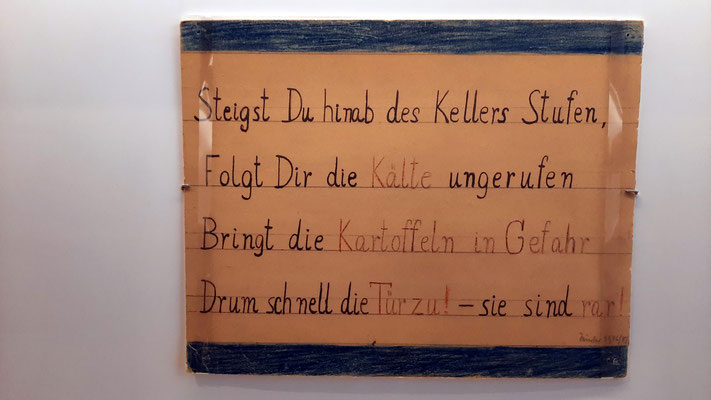 Steigst Du hinab des Kellers Stufen,
Folgt Dir die Kälte ungerufen
Bringt die Kartoffeln in Gefahr
Drum schnell die Tür zu! – sie sind rar!